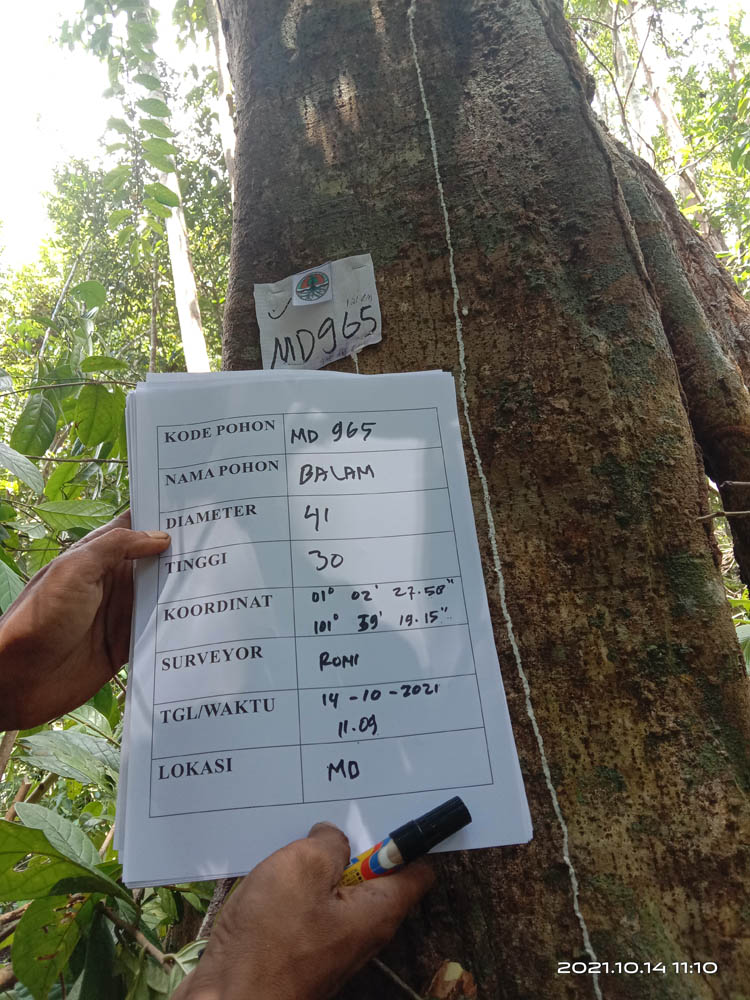 MD965
KODE POHON MD 965
NAMA POHON BALAM
DIAMETER 41
TINGGI 30
KOORDINAT 01° 02' 27.58"
101° 39' 19.15"
SURVEYOR ROMI
TGL/WAKTU 14-10-2021
11.09
LOKASI MD
2021.10.14 11:10